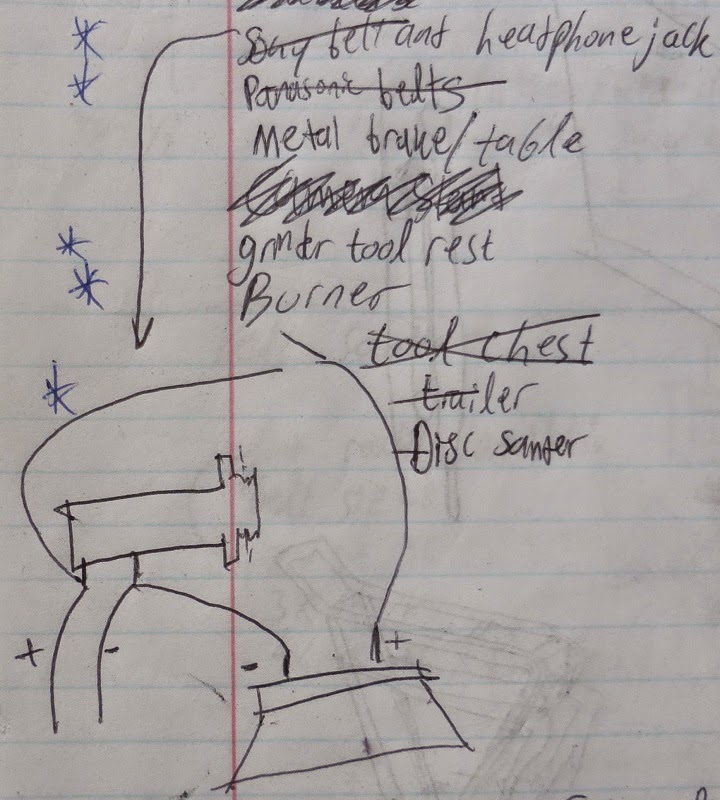 Sony belt and headphone jack
Panasonic belts
Metal brake/table
grinder tool rest
Burner
tool chest
trailer
Disc sander
+
-
-
+